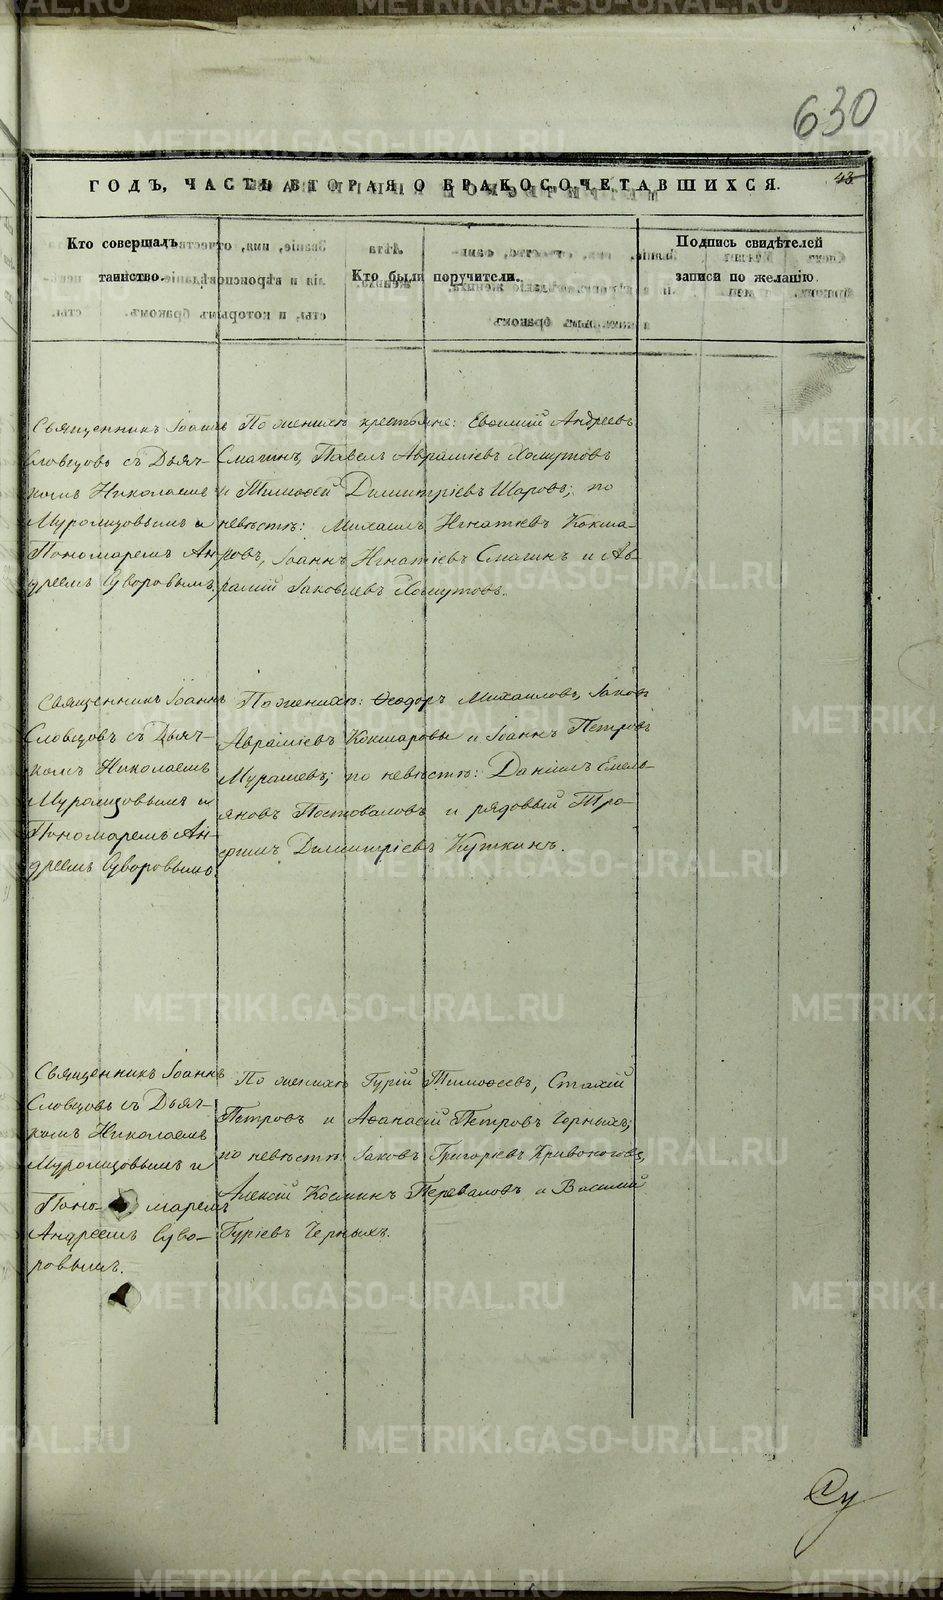 630
ГОДЪ, ЧАСТЬ ВТОРАЯ О БРАКОСОЧЕТАВШИХСЯ.
43
Кто совершалъ
таинство.
Кто были поручители.
Подпись свидѣтелей
записи по желанію.
Священникъ Іоаннъ
Словцовъ съ Дьяч-
комъ Николаемъ
Муромцовымъ и
Пономаремъ Ан-
дреемъ Суворовымъ.
По женихѣ крестьяне: Евѳимій Андреевъ
Смагинъ, Павелъ Аврамiевъ Хомутовъ
и Тимоѳей Димитріевъ Шаровъ; по
невѣстѣ: Михаилъ Игнатіевъ Кокша-
ровъ, Іоаннъ Игнатіевъ Смагинъ и Ав-
рамій Іаковлевъ Хомутовъ.
Священникъ Іоаннъ
Словцовъ съ Дьяч-
комъ Николаемъ
Муромцовымъ и
Пономаремъ Ан-
дреемъ Суворовымъ.
По женихѣ: Ѳеодоръ Михаиловъ, Іаковъ
Авраміевъ Кокшаровы и Іоаннъ Петровъ
Мурашевъ; по невѣстѣ: Даніилъ Емель-
яновъ Постоваловъ и рядовый Тро-
фимъ Димитріевъ Куткинъ.
Священникъ Іоаннъ
Словцовъ съ Дьяч-
комъ Николаемъ
Муромцовымъ и
Поно- маремъ
Андреемъ Суво-
ровымъ.
По женихѣ Гурій Тимоѳеевъ, Стахій
Петровъ и Аѳанасій Петровъ Черныхъ;
по невѣстѣ: Іаковъ Григоріевъ Кривоноговъ,
Алексій Косминъ Переваловъ и Василій
Гуріевъ Черныхъ.
Су
METRIKI.GASO-URAL.RU